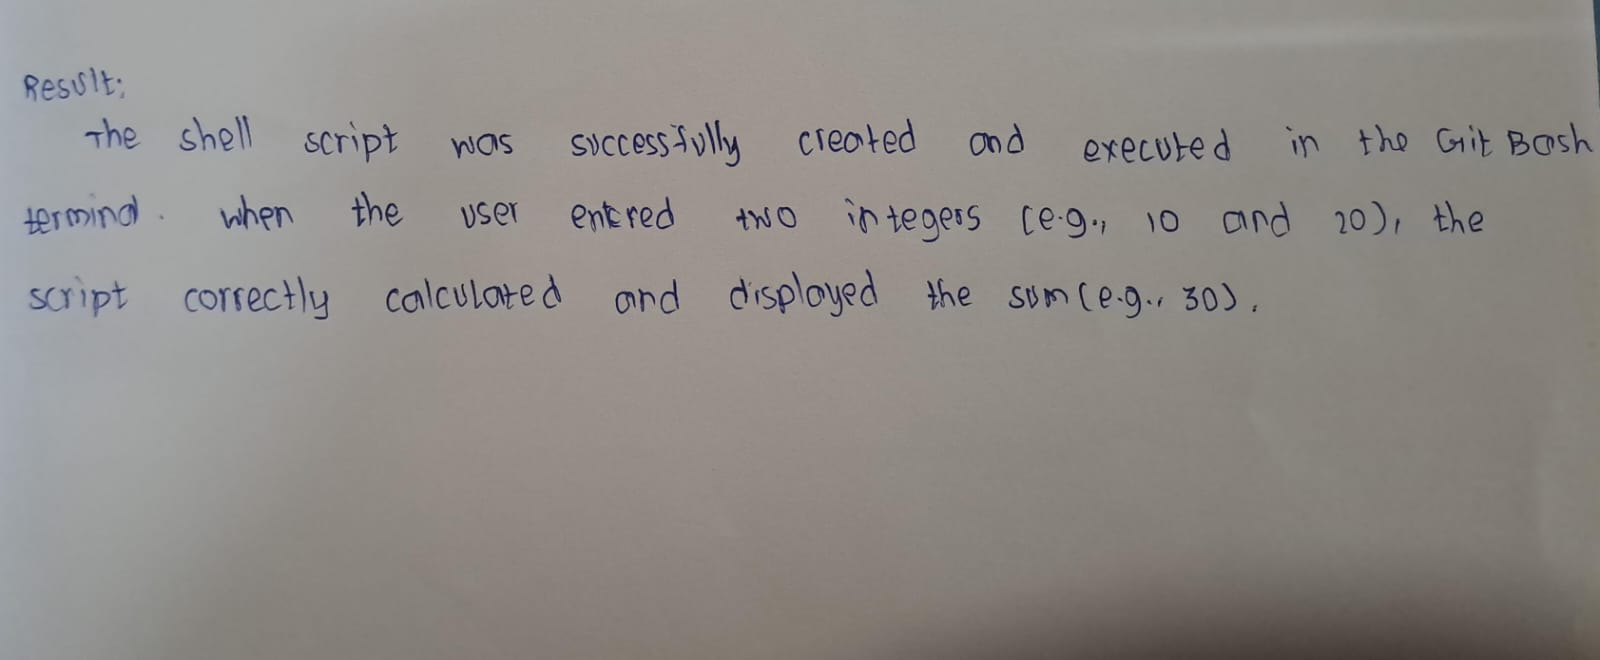 Result:
The shell script was successfully created and executed in the Git Bash
terminal. when the user entered two integers (e.g., 10 and 20), the
script correctly calculated and displayed the sum (e.g., 30).